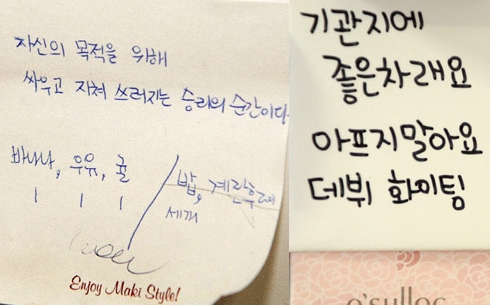 자신의 목적을 위해
싸우고 지쳐 쓰러지는 승리의 순간이다
바나나, 우유, 귤
1 1 1
밥, 계란후라이
세개
Enjoy Maki Style!
기관지에
좋은차래요
아프지말아요
데뷔 화이팅
o'sulloc